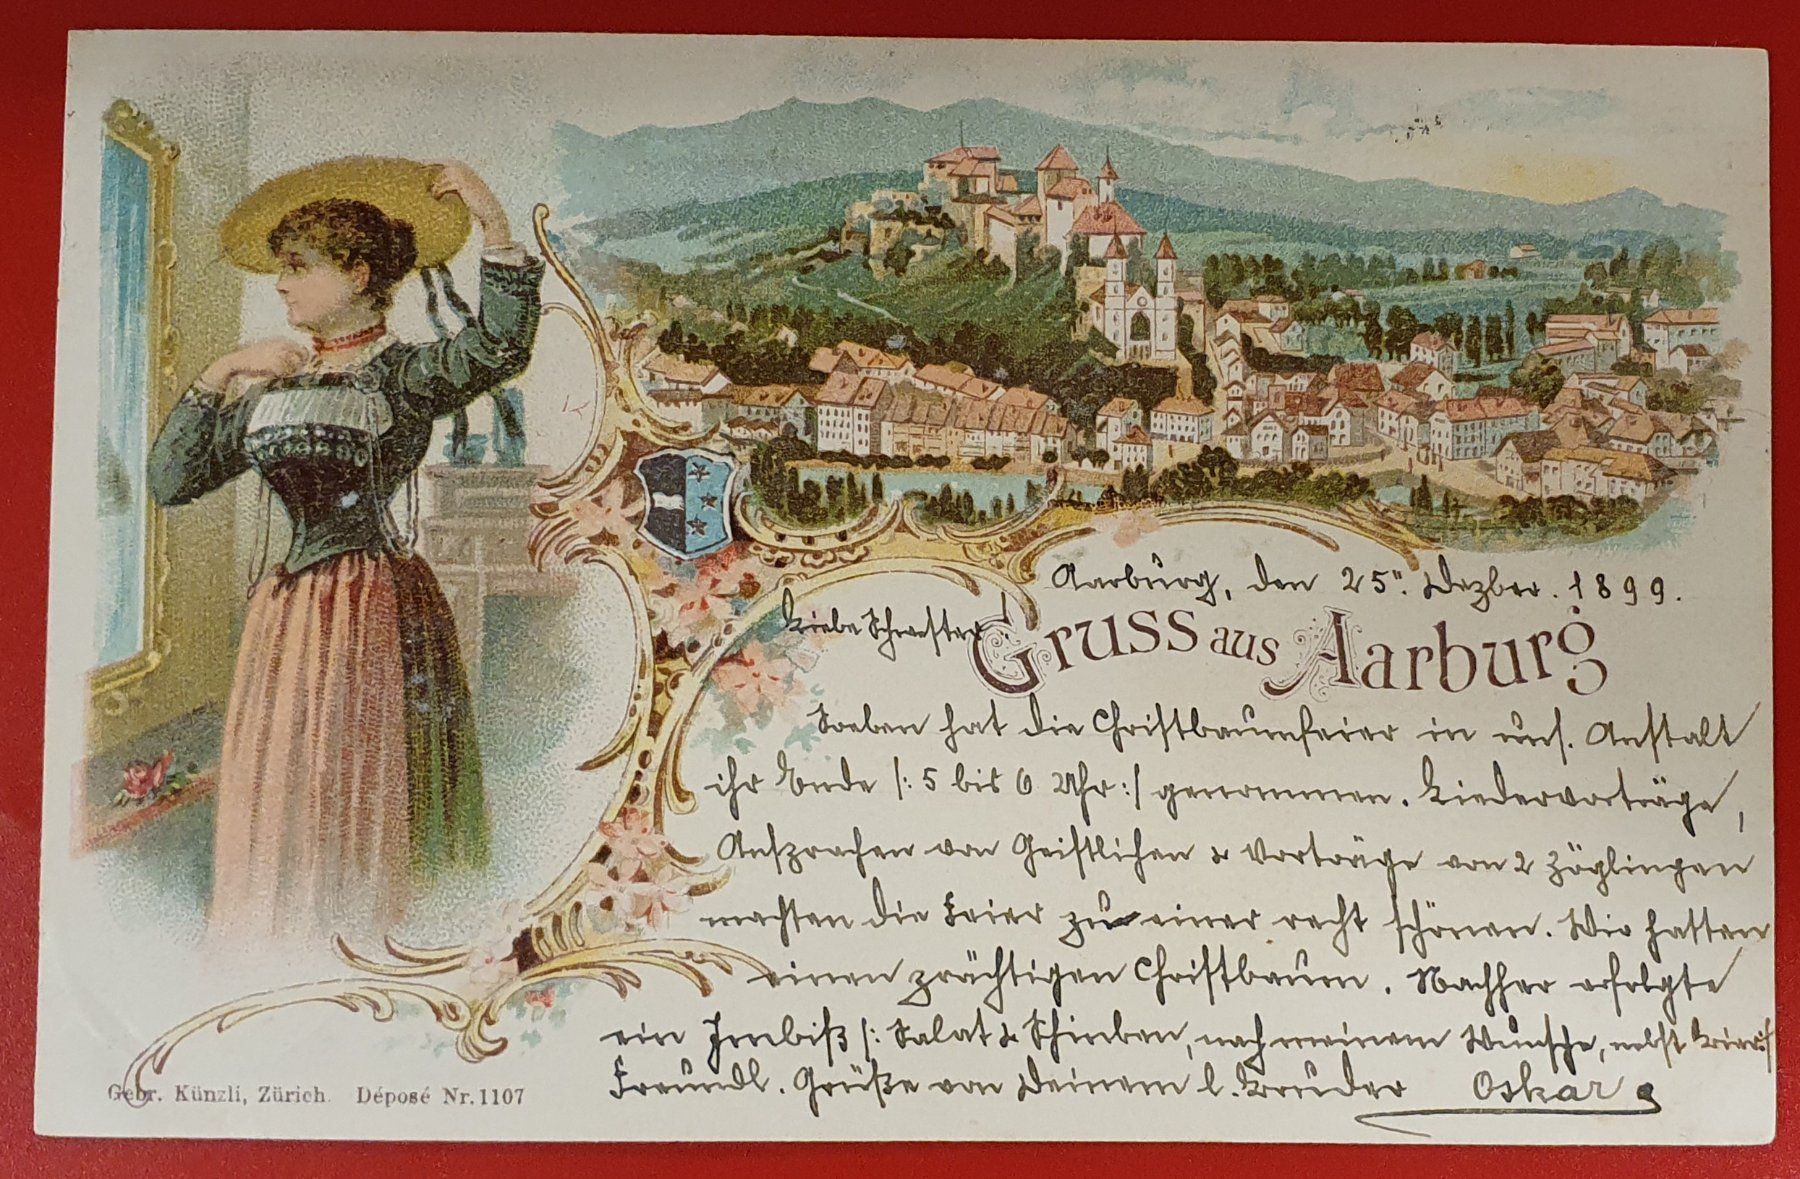 Aarburg, den 25". Dezber. 1899.
Liebe Schwester!
Gruss aus Aarburg
Soeben hat die Christbaumfeier in uns. Anstalt
ihr Ende /: 5 bis 6 Uhr :/ genommen. Liedervorträge,
Ansprachen von Geistlichen & Vorträge von 2 Zöglingen
machten die Feier zu einer recht schönen. Wir hatten
einen prächtigen Christbaum. Nachher erfolgte
ein Imbiß /: Salat & Schinken, nach meinem Wunsche, nebst Bier :/
Freundl. Grüße von Deinem l. Bruder Oskar
Gebr. Künzli, Zürich. Déposé Nr. 1107